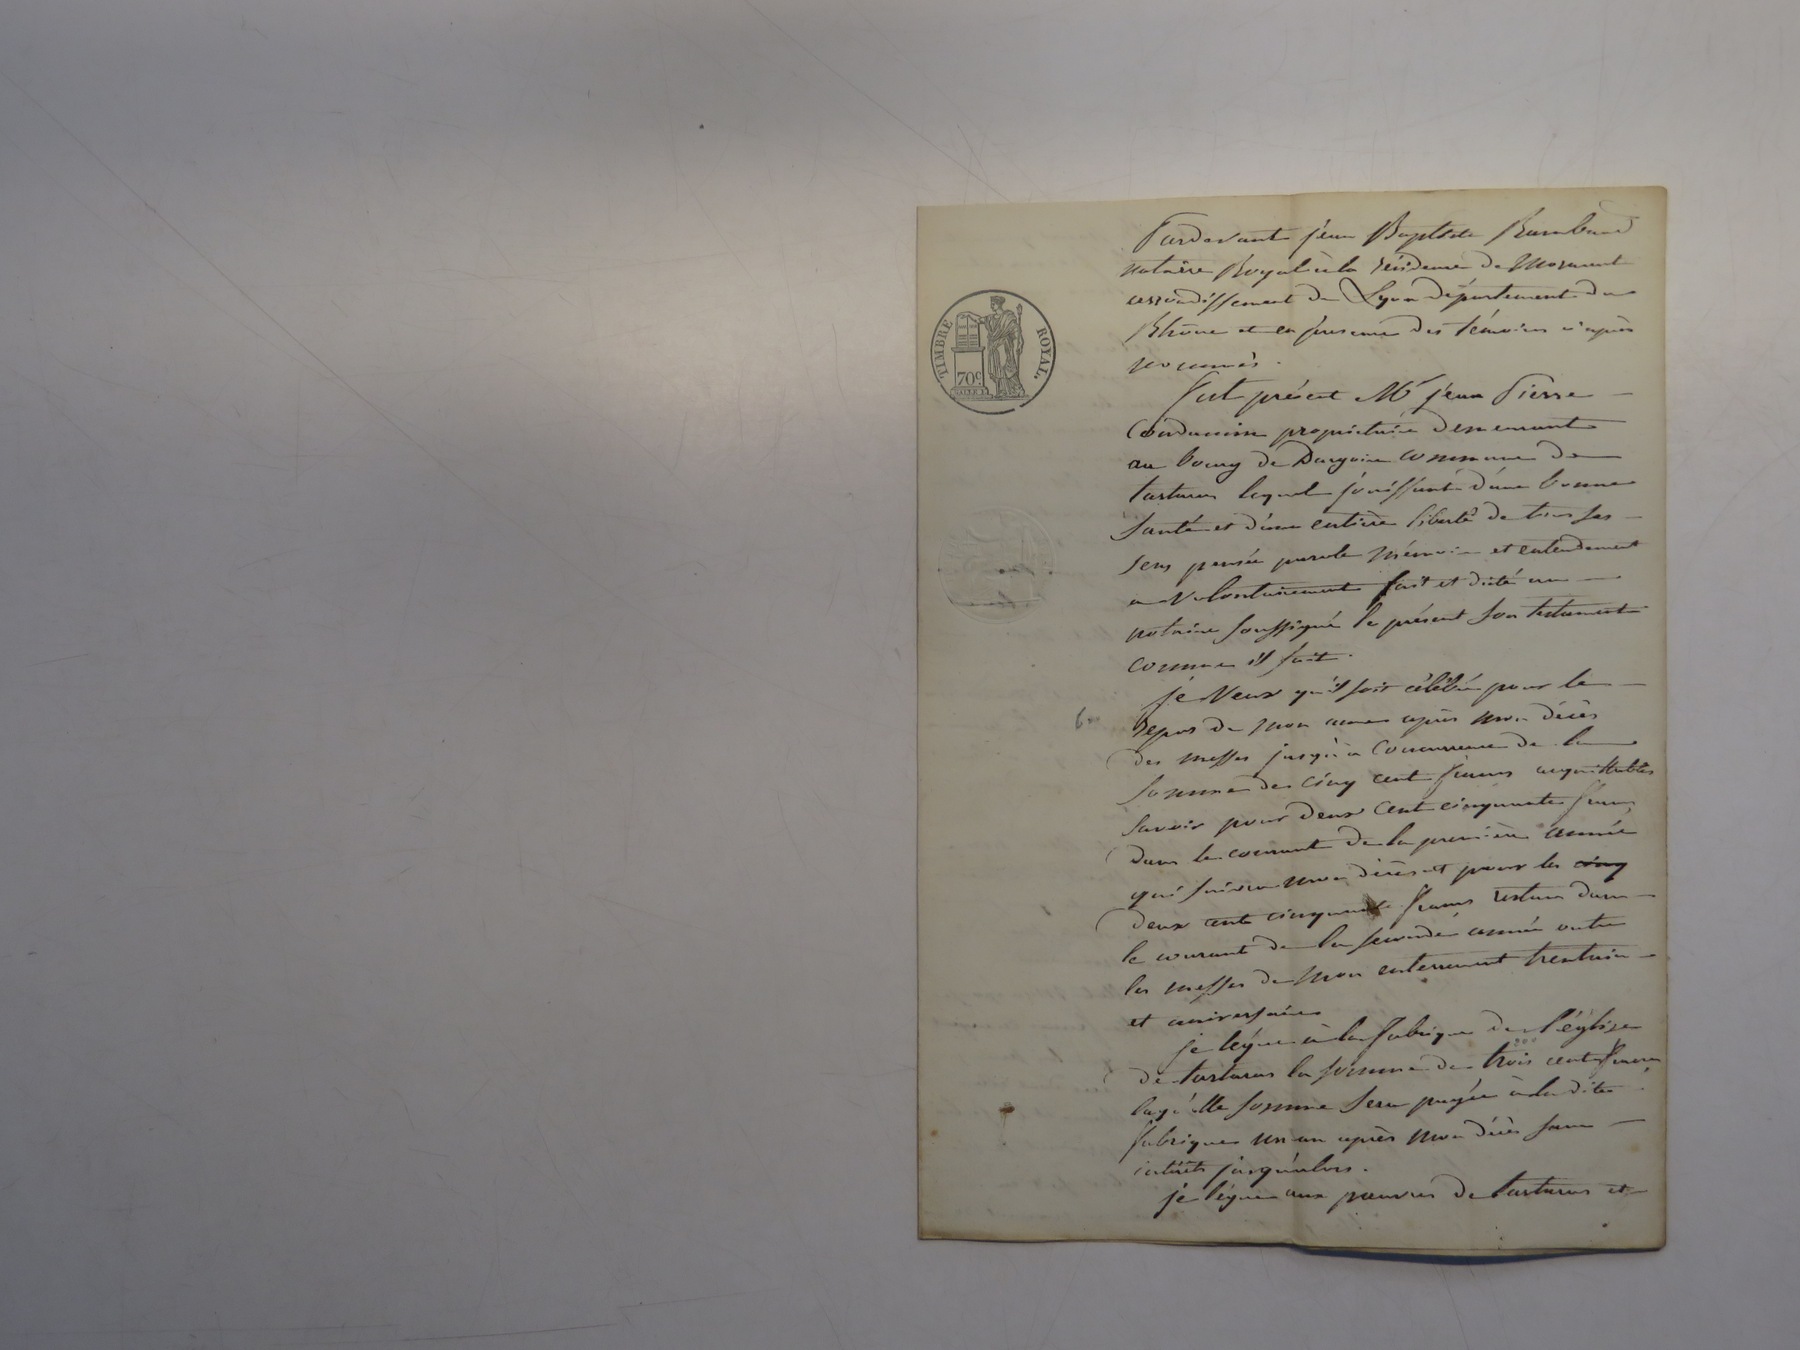 TIMBRE ROYAL.
70c
Pardevant jean Baptiste Rambaud
notaire Royal à la résidence de Mornant
arrondissement de Lyon département du
Rhône et en presence des témoins ci après
nommés.
fut présent Mr jean Pierre
Condamin propriétaire demeurant
au bourg de Dargoire commune de
tartaras lequel jouissant d'une bonne
santé et d'une entière liberté de tous ses
sens pensée parole mémoire et entendement
a volontairement fait et dicté au
notaire soussigné le présent son testament
comme il suit.
je veux qu'il soit célébré pour le
repos de mon ame après mon décès
des messes jusqu'à concurrence de la
somme de cinq cent francs acquittables
savoir pour deux cent cinquante francs
dans le courant de la première année
qui suivra mon décès et pour les cinq
deux cent cinquante francs restans dans
le courant de la seconde année outre
les messes de mon enterrement trentain
et anniversaire
je légue à la fabrique de l'église
de tartaras la somme de trois cents francs
laquelle somme sera payée à la dite
fabrique un an après mon décès sans
intérêts jusqu'alors.
je légue aux pauvres de tartaras et